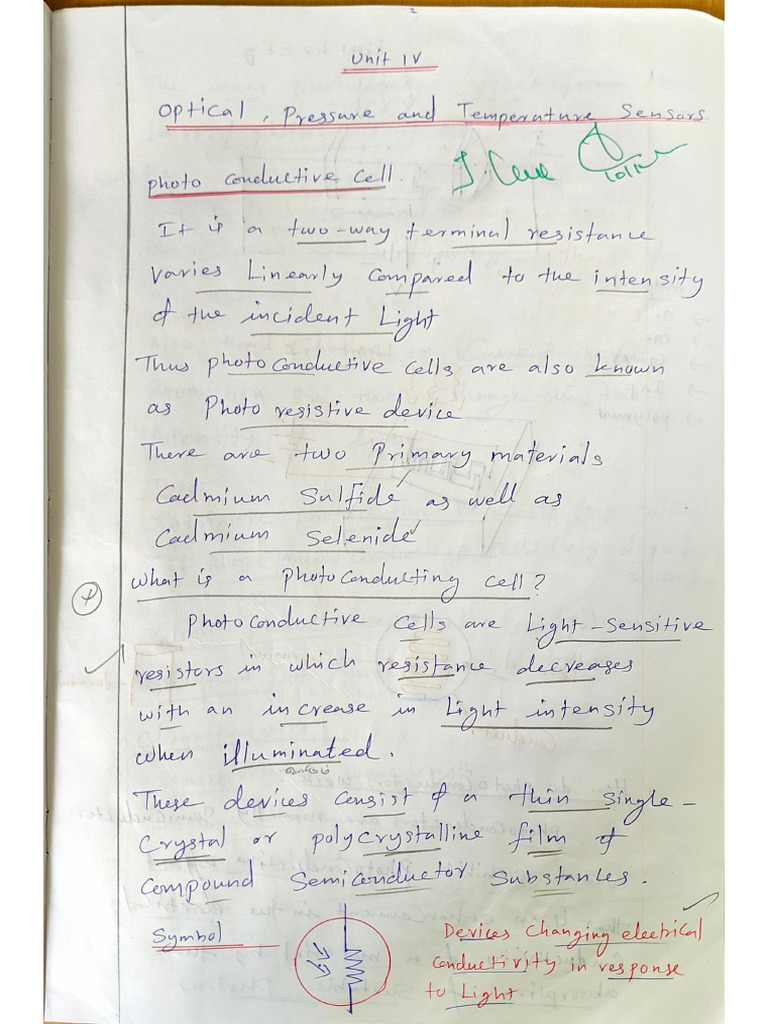 Unit IV
Optical, Pressure and Temperature Sensors
Photo Conductive Cell.
It is a two-way terminal resistance
varies Linearly compared to the intensity
of the incident Light
Thus photoconductive cells are also known
as Photo resistive device
There are two Primary materials
Cadmium Sulfide as well as
Cadmium Selenide
What is a Photo Conducting Cell?
Photo Conductive Cells are Light-Sensitive
resistors in which resistance decreases
with an increase in Light intensity
when illuminated.
These devices consist of a thin single-
Crystal or polycrystalline film of
compound Semiconductor Substances.
Symbol
Devices Changing electrical
conductivity in response
to Light